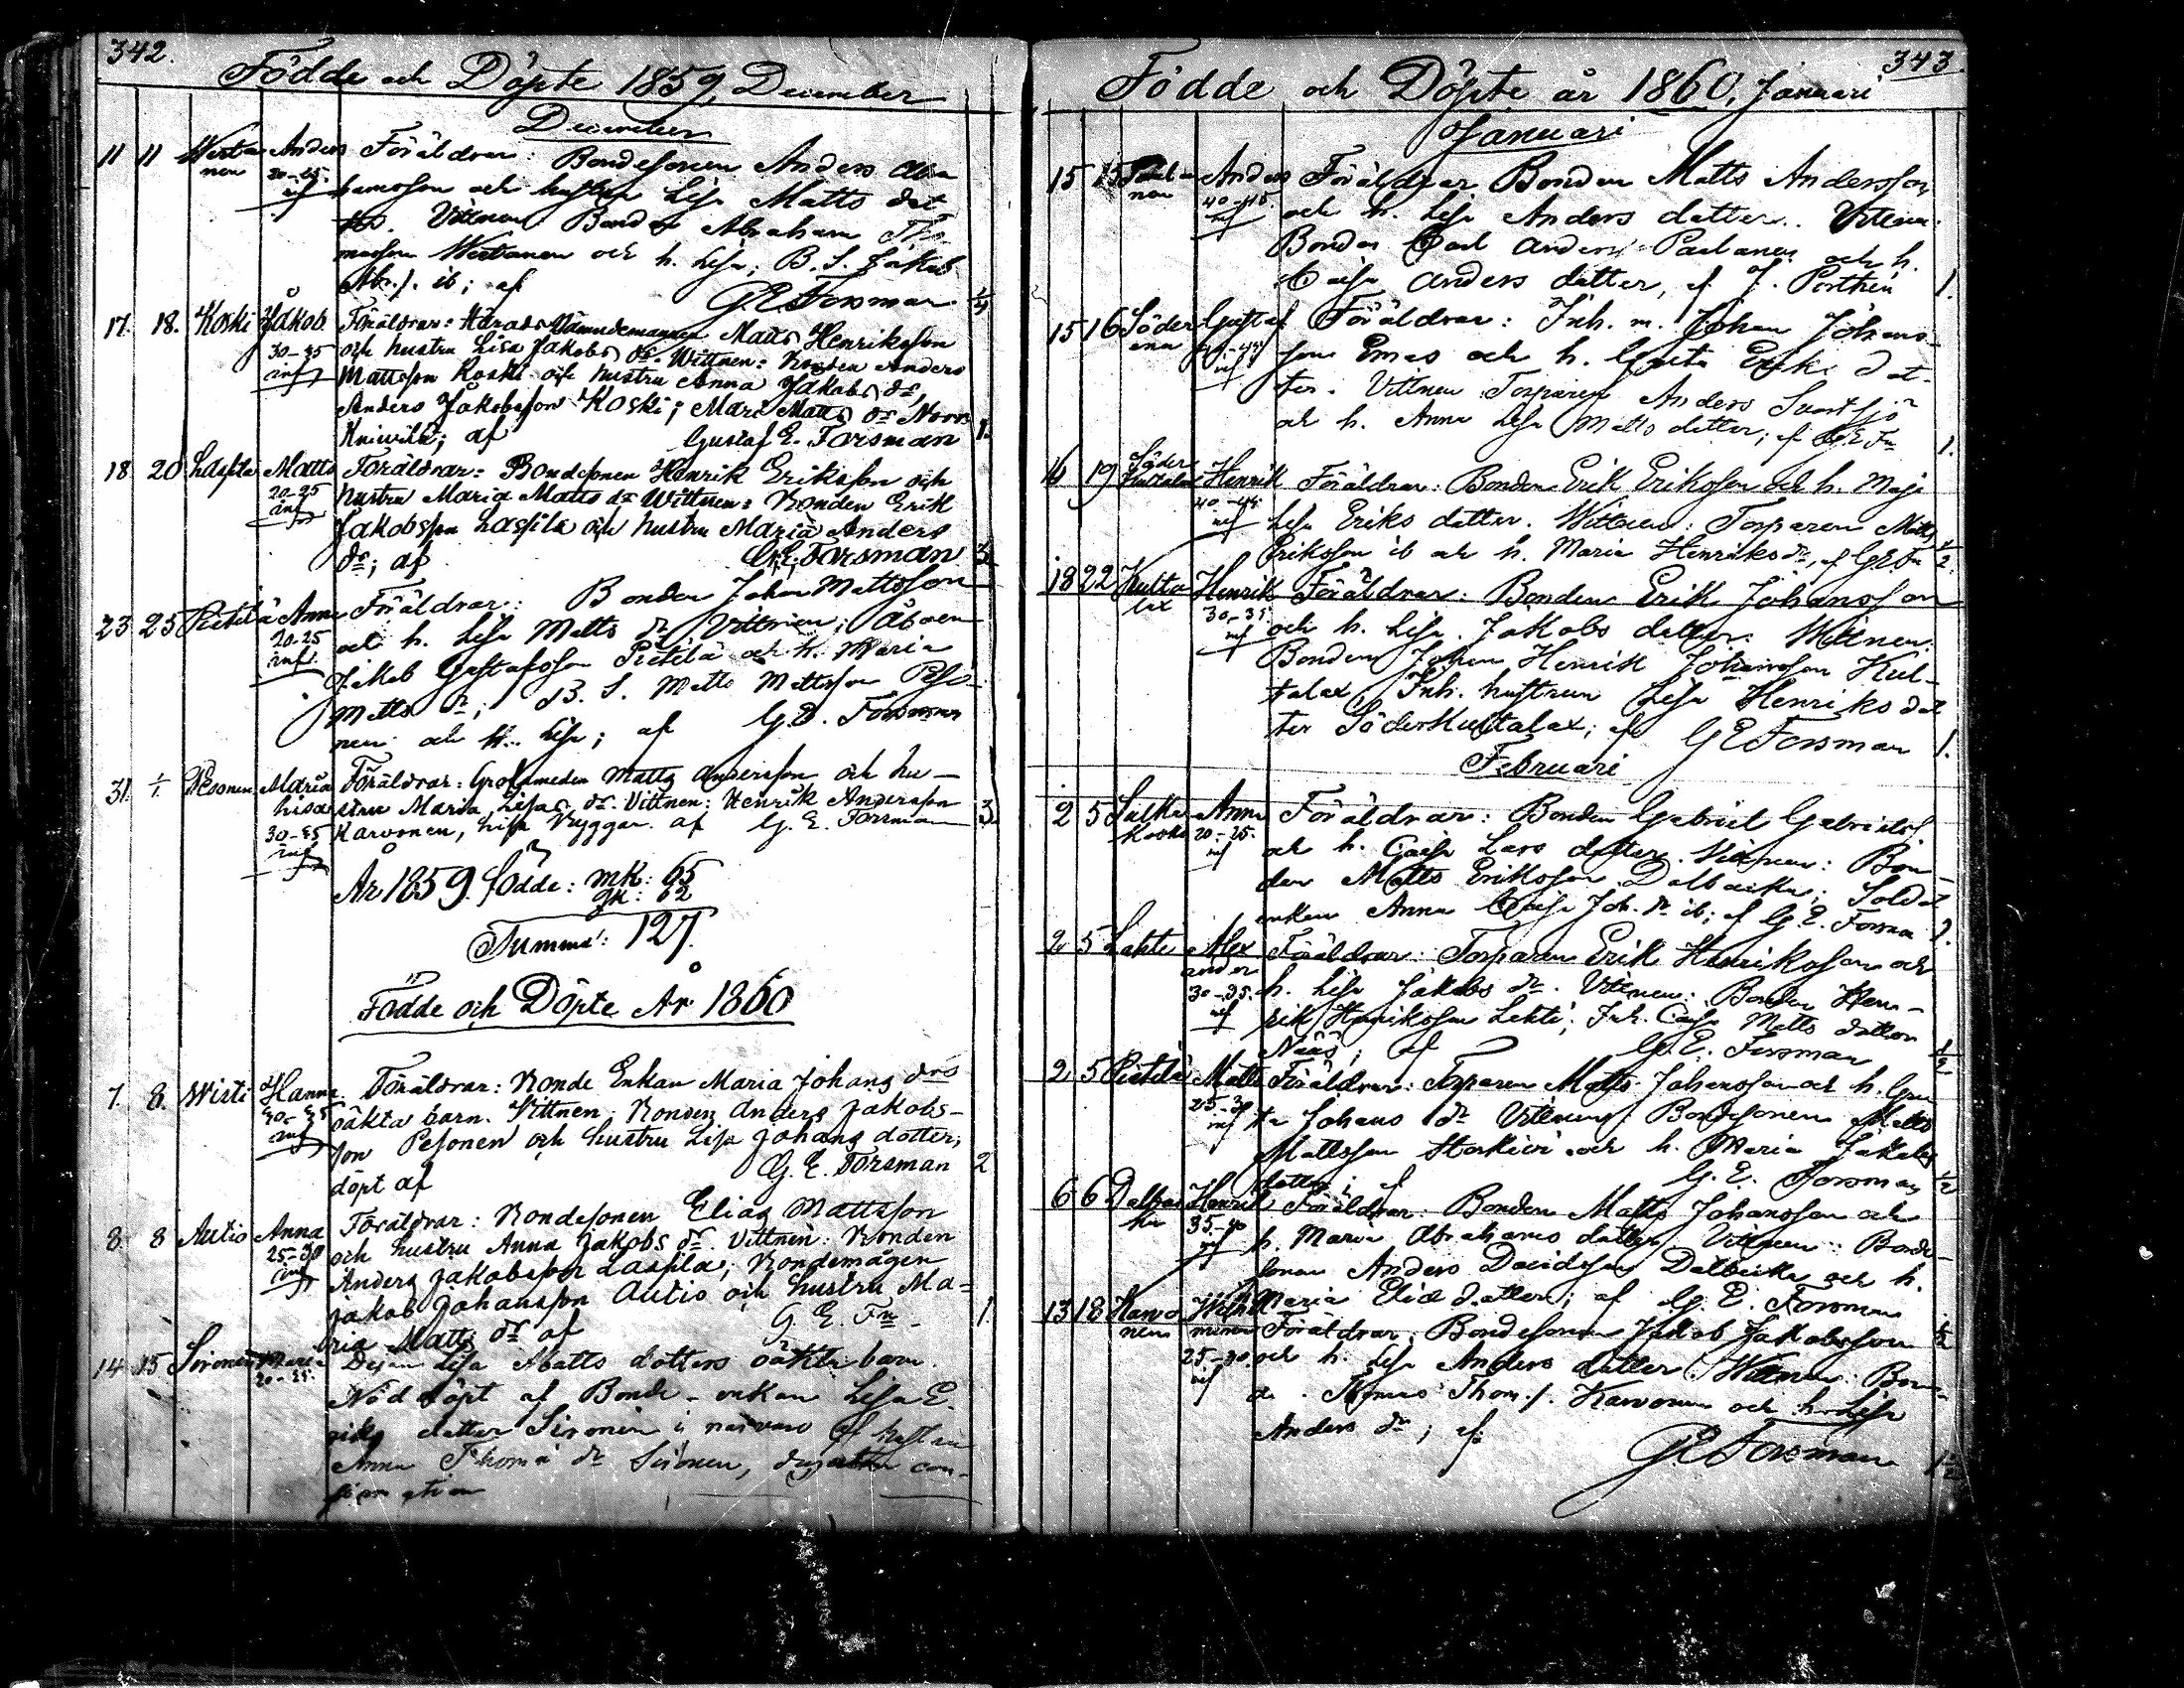 342.
Födde och Döpte 1859, December
December
11 11 Werta Anders Föräldrar: Bondesonen Anders Abra
nen 20-25. hamsson och hustru Lisa Matts dot
inf ter. Vittnen Bonden Abraham Tho
masson Wertanen och h. Lisa; B. S. Jakob
Abr. s. ib; af G E Forsman
17. 18. Koski Jakob Föräldrar: Härads Nämndemannen Matts Henriksson
30-35 och hustru Lisa Jakobs dr. Wittnen: Bonden Anders
inf Mattsson Koski och hustru Anna Jakobs dr,
Anders Jakobsson Koski; Mari Matts dr Norr
Kniwilä; af Gustaf E. Forsman 1.
18 20 Lassila Matts Föräldrar: Bondesonen Henrik Eriksson och
20-25 hustru Maria Matts dr Wittnen: Bonden Erik
inf Jakobsson Lassila och hustru Maria Anders
dr; af G. E. Forsman 3
23 25 Pietilä Anna Föräldrar: Bonden Johan Mattsson
20-25 och h. Lisa Matts dr Vittnen; Åboen
inf. Jakob Gustafsson Pietilä och h. Maria
Matts dr; B. S. Matts Mattsson Peso
nen och h. Lisa; af G. E. Forsman
31. 1/1. Pesonen Maria Föräldrar: Matts Andersson och hu-
Lisa stru Maria Lisa dr. Vittnen: Henrik Andersson
30-35 Karvonen, Lisa af G. E. Forsman 3
inf
År 1859. födde: mk: 65
qk: 62
Summa: 127.
Födde och Döpte År 1860
7. 8. Wisti Hanna. Föräldrar: Bonde Enkan Maria Johans drs
30-35 oäkta barn. Vittnen. Bonden Anders Jakobs-
inf son Pesonen och hustru Lisa Johans dotter;
döpt af G. E. Forsman 2
8 8 Autio Anna Föräldrar: Bondesonen Elias Mattsson
25-30 och hustru Anna Jakobs dr. Vittnen: Bonden
inf Anders Jakobsson Lassila; Bondemågen
Jakob Johansson Autio och hustru Ma-
ria Matts dr af G. E. Fn 1.
14 15 Sironen Maria Lisa Matts dotters oäkta barn.
20-25. Nöddöpt af Bonde-enkan Lisa E
riks dotter Sironen i närvaro af hustru
Anna Thoma dr Sironen, con-
firmation
343.
Födde och Döpte år 1860, Januari
Januari
15 15 Anders Föräldrar Bonden Matts Andersson
nen 40-45. och h. Lisa Anders dotter. Vittnen:
inf Bonden Carl Anders. Paulanen och h.
Caisa Anders dotter, af J. Porthén 1.
15 16 Söder Gustaf Föräldrar: Inh. m. Johan Johans-
ena inf son Emas och h. Greta Eriks dot-
ter. Vittnen Torparen Anders Svartsjö
och h. Anna Lisa Matts dotter; af G E Fn 1.
16 19 Söder Henrik Föräldrar: Bonden Erik Eriksson och h. Maja
Kultalax 40-45. Lisa Eriks dotter. Wittnen: Torparen Matts
inf Eriksson ib och h. Maria Henriks dr, af G E Fn
18 22 Kulta Henrik Föräldrar: Bonden Erik Johansson
lax 30-35. och h. Lisa Jakobs dotter. Wittnen:
inf Bonden Johan Henrik Johansson Kul-
talax, Inh. hustrun Lisa Henriks dot
ter Söderkultalax; af G E Forsman 1.
Februari
2 5 Anna Föräldrar: Bonden Gabriel Gabriels
Koski 20-25. och h. Caisa Lars dotter. Vittnen: Bon-
inf den Matts Eriksson Dalbacka; Soldat
enkan Anna Caisa Joh. dr ib; af G. E. Forsman 2.
2 5 Lahti Alex Föräldrar: Torparen Erik Henriksson och
ander h. Lisa Jakobs dr. Vittnen: Bonden Hen-
30-35. rik Henriksson Lahti; Inh. Caisa Matts dotter
inf Näs; af G. E. Forsman
2 5 Pietilä Matts Föräldrar: Torparen Matts Johansson och h. Gre
25-30 ta Johans dr Vittnen: Bondesonen Matts
inf Mattsson och h. Maria Jakobs
dotter; af G. E. Forsman
6 6 Dalbac Henrik Föräldrar: Bonden Matts Johansson och
ka 35-40 h. Maria Abrahams dotter Vittnen: Bonde-
inf sonen Anders Davidsson Dalbacka och h.
Maria Elias dotter; af G. E. Forsman
13 18 Karvo Wilhel Föräldrar: Bondesonen Jakob Jakobsson
nen mina och h. Lisa Anders dotter. Wittnen: Bon-
25-30 de. Thomas Thom. s. Karvonen och h. Lisa
inf Anders dr; af G E Forsman